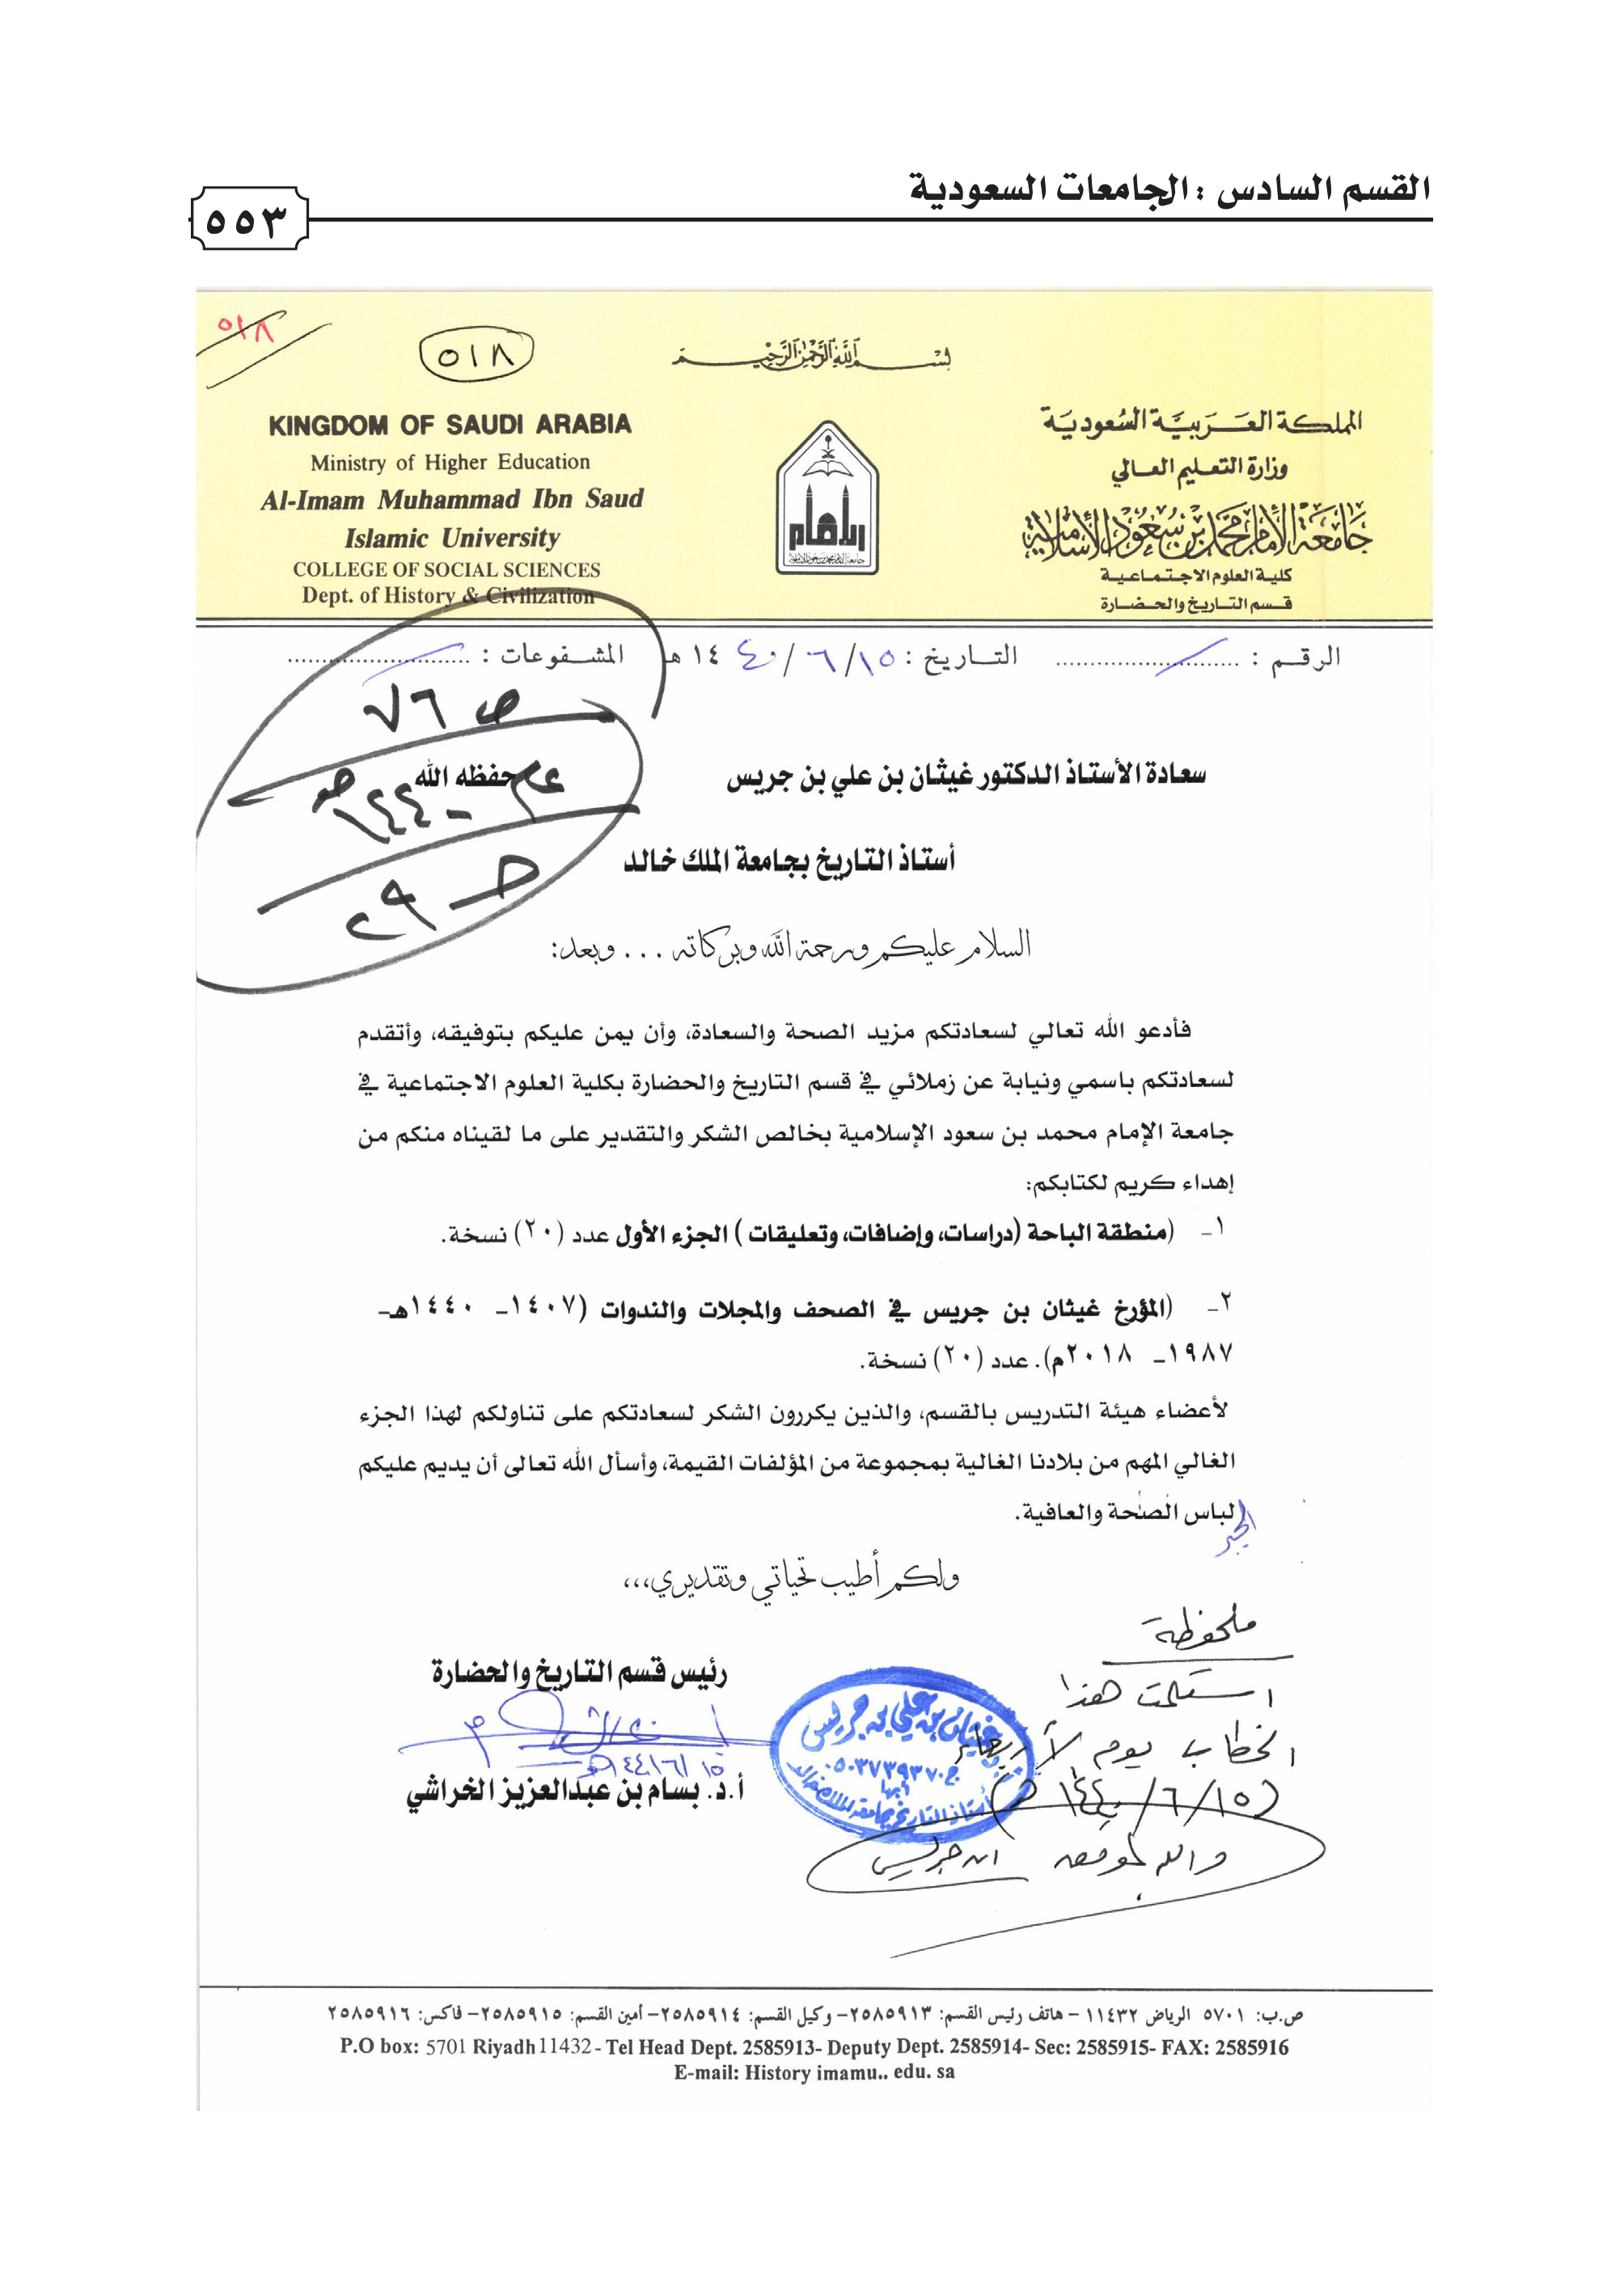 القسم السادس : الجامعات السعودية
٥٥٣
٥١٨
٥١٨
بسم الله الرحمن الرحيم
KINGDOM OF SAUDI ARABIA
Ministry of Higher Education
Al-Imam Muhammad Ibn Saud
Islamic University
COLLEGE OF SOCIAL SCIENCES
Dept. of History & Civilization
الإمام
جامعة الإمام محمد بن سعود الإسلامية
المملكة العربية السعودية
وزارة التعليم العالي
جامعة الإمام محمد بن سعود الإسلامية
كلية العلوم الاجتماعية
قسم التاريخ والحضارة
الرقم : ........................ التاريخ : ١٥/ ٦ / ١٤٤٠هـ المشفوعات : ........................
ص ٧٦
ج ٢٩
سعادة الأستاذ الدكتور غيثان بن علي بن جريس حفظه الله
أستاذ التاريخ بجامعة الملك خالد
السلام عليكم ورحمة الله وبركاته . . . وبعد:
فأدعو الله تعالي لسعادتكم مزيد الصحة والسعادة، وأن يمن عليكم بتوفيقه، وأتقدم
لسعادتكم باسمي ونيابة عن زملائي في قسم التاريخ والحضارة بكلية العلوم الاجتماعية في
جامعة الإمام محمد بن سعود الإسلامية بخالص الشكر والتقدير على ما لقيناه منكم من
إهداء كريم لكتابكم:
١- (منطقة الباحة (دراسات، وإضافات، وتعليقات ) الجزء الأول عدد (٢٠) نسخة.
٢- (المؤرخ غيثان بن جريس في الصحف والمجلات والندوات (١٤٠٧- ١٤٤٠هـ-
١٩٨٧- ٢٠١٨م). عدد (٢٠) نسخة.
لأعضاء هيئة التدريس بالقسم، والذين يكررون الشكر لسعادتكم على تناولكم لهذا الجزء
الغالي المهم من بلادنا الغالية بمجموعة من المؤلفات القيمة، وأسأل الله تعالى أن يديم عليكم
لباس الصحة والعافية.
ولكم أطيب تحياتي وتقديري،،،
رئيس قسم التاريخ والحضارة
١٥/٦/١٤٤٠هـ
أ.د. بسام بن عبدالعزيز الخراشي
غيثان بن علي بن جريس
ج٠٥٠٣٧٣٩٣٧٠
أبها
أستاذ التاريخ بجامعة الملك خالد
ملحوظة
استلمت هذا
الخطاب يوم الأربعاء
(١٥/٦/١٤٤٠هـ)
والله الموفق ابن جريس
ص.ب: ٥٧٠١ الرياض ١١٤٣٢ - هاتف رئيس القسم: ٢٥٨٥٩١٣- وكيل القسم: ٢٥٨٥٩١٤- أمين القسم: ٢٥٨٥٩١٥- فاكس: ٢٥٨٥٩١٦
P.O box: 5701 Riyadh 11432 - Tel Head Dept. 2585913- Deputy Dept. 2585914- Sec: 2585915- FAX: 2585916
E-mail: History imamu.. edu. sa